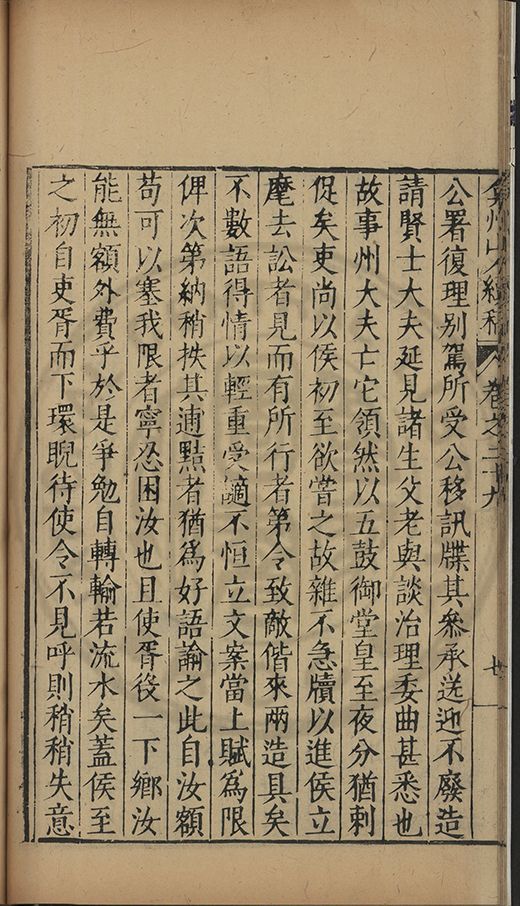 弇州山人續稿 卷之三十九 廿一
公署復理別駕所受公移訊牒其參承送迎不廢造
請賢士大夫延見諸生父老與談治理委曲甚悉也
故事州大夫亡它領然以五鼓御堂皇至夜分猶剌
促矣吏尚以侯初至欲嘗之故雜不急牘以進侯立
麾去訟者見而有所行者第令致敵偕來兩造具矣
不數語得情以輕重受讁不恒立文案當上賦爲限
俾次第納稍抶其逋黠者猶爲好語諭之此自汝額
苟可以塞我限者寧忍困汝也且使胥役一下鄉汝
能無額外費乎於是爭勉自轉輸若流水矣蓋侯至
之初自吏胥而下環睨待使令不見呼則稍稍失意